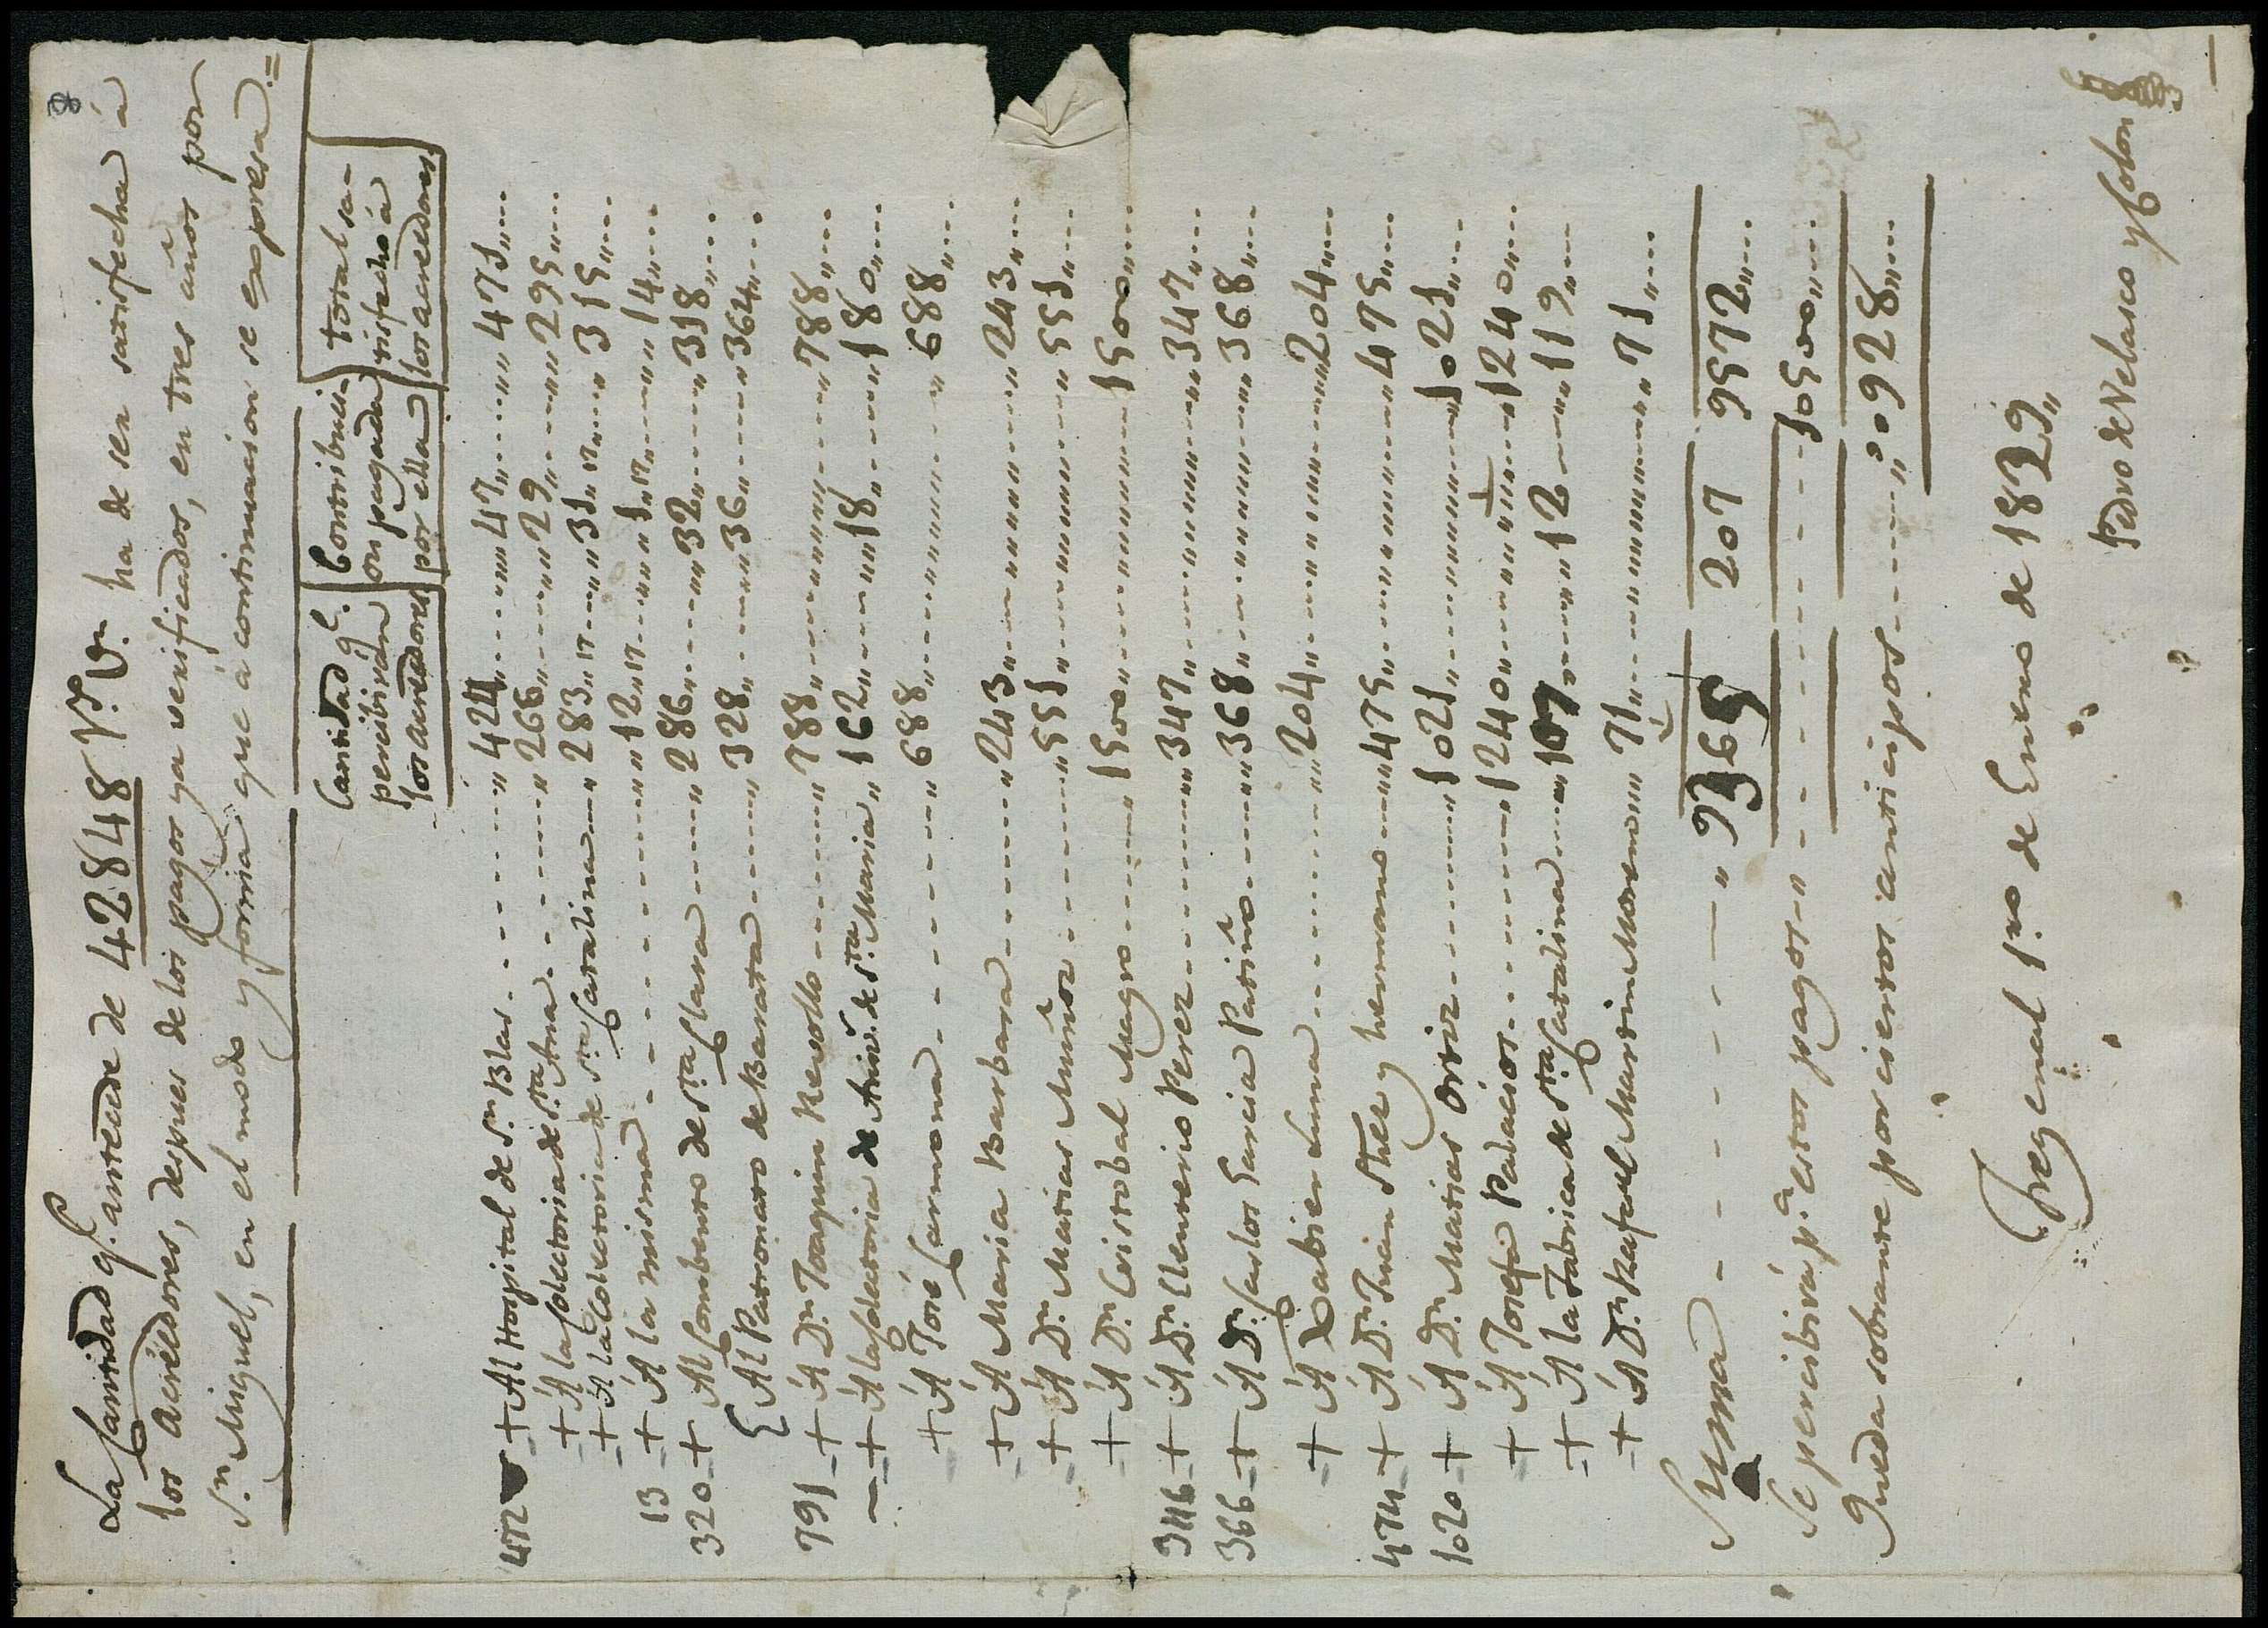 8
La Cantidad qe. antecede de 42848 rs. vn. ha de ser satisfecha á
los acrédores, despues de los pagos ya verificados, en tres años por
Sn. Miguel, en el modo y forma que á continuacion se expresa =
Cantidad qe. percibiran los acredores | Contribuci-on pagada por ella | total sa-tisfecho á los acreedores
472 + Al Hospital de Sn. Blas ------ 424 ------ 47 ------ 471
+ Á la Colecturia de Sta. Ana ------ 266 ------ 29 ------ 295
+ Á la Colecturia de Sta. Catalina --- 283 " 17 --- 31 " 17 --- 315
13 + Á la misma ------ 12 " 17 ------ 1 " 17 ------ 14
320 + Al Combento de Sta. Clara ------ 286 ------ 32 ------ 318
{ Al Patronato de Barata ------ 328 ------ 36 ------ 364
791 + Á Dn. Joaquin Rebollo ------ 788 ------ 788
+ Á la Colecturia de Aniv. de Sta. Maria " 162 ------ 18 ------ 180
+ Á José Carmona ------ 688 ------ 688
+ Á Maria Barbara ------ 243 ------ 243
+ Á Dn. Matias Muñoz ------ 551 ------ 551
+ Á Dn. Cristobal Magro ------ 1500 ------ 1500
346 + Á Dn. Eleuterio Perez ------ 347 ------ 347
366 + Á Dn. Carlos Garcia Patiño ------ 368 ------ 368
+ Á Xabier Luna ------ 204 ------ 204
474 + Á Dn. Juan Shez y hermano ------ 475 ------ 475
1020 + Á Dn. Matias Ortiz ------ 1021 ------ 1021
+ Á Josefa Palacios ------ 1240 ------ 1240
+ Á la Fabrica de Sta. Catalina ------ 107 ------ 12 ------ 119
+ Á Dn. Rafael Martin Moreno ------ 71 ------ 71
Suma ------ 9365 207 9572
Se percibirá pa. estos pagos ------ 10500
Queda sobrante por ciertos anticipos ------ 0928
Fregenal 1ro de Enero de 1829
Pedro de Velasco y Colon